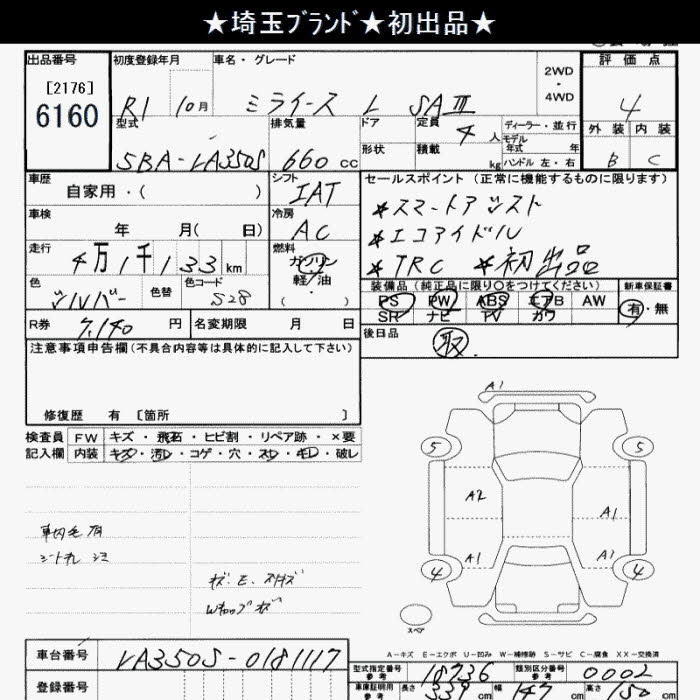 ★埼玉ブランド★初出品★
出品番号
[2176]
6160
初度登録年月
R1 10月
車名・グレード
ミライース L SAⅢ
2WD
・
4WD
評価点
4
外装 内装
B C
型式
5BA-LA350S
排気量
660 cc
ドア
形状
定員
4 人
積載
kg
ディーラー・並行
モデル
年式 年
ハンドル 左・右
車歴
自家用・( )
シフト
IAT
セールスポイント (正常に機能するものに限ります)
★スマートアシスト
★エコアイドル
★TRC ★初出品
車検
年 月( 日)
冷房
AC
走行
4万1千133km
燃料
ガソリン
軽・油
・( )
色
シルバー
色替
色コード
S28
装備品(純正品に限り○をつけてください)
PS PW ABS エアB AW
SR ナビ TV カワ
新車保証書
有・無
R券
7,140 円
名変期限 月 日
後日品
取
注意事項申告欄(不具合内容等は具体的に記入して下さい)
修復歴 有 〔箇所 〕
検査員 FW キズ・飛石・ヒビ割・リペア跡・×要
記入欄 内装 キズ・汚レ・コゲ・穴・スレ・キレ・破レ
A1
5 5
A2
A1
A1 A1
4 4
スペア
シートスレ シミ
A-キズ E-エクボ U-凹み W-補修跡 S-サビ C-腐食 XX-交換済
車台番号
LA350S-0181117
登録番号
型式指定番号
参考
18736
類別区分番号
参考
0002
車庫証明用
参考
長さ 339 cm 幅 147 cm 高さ 150 cm